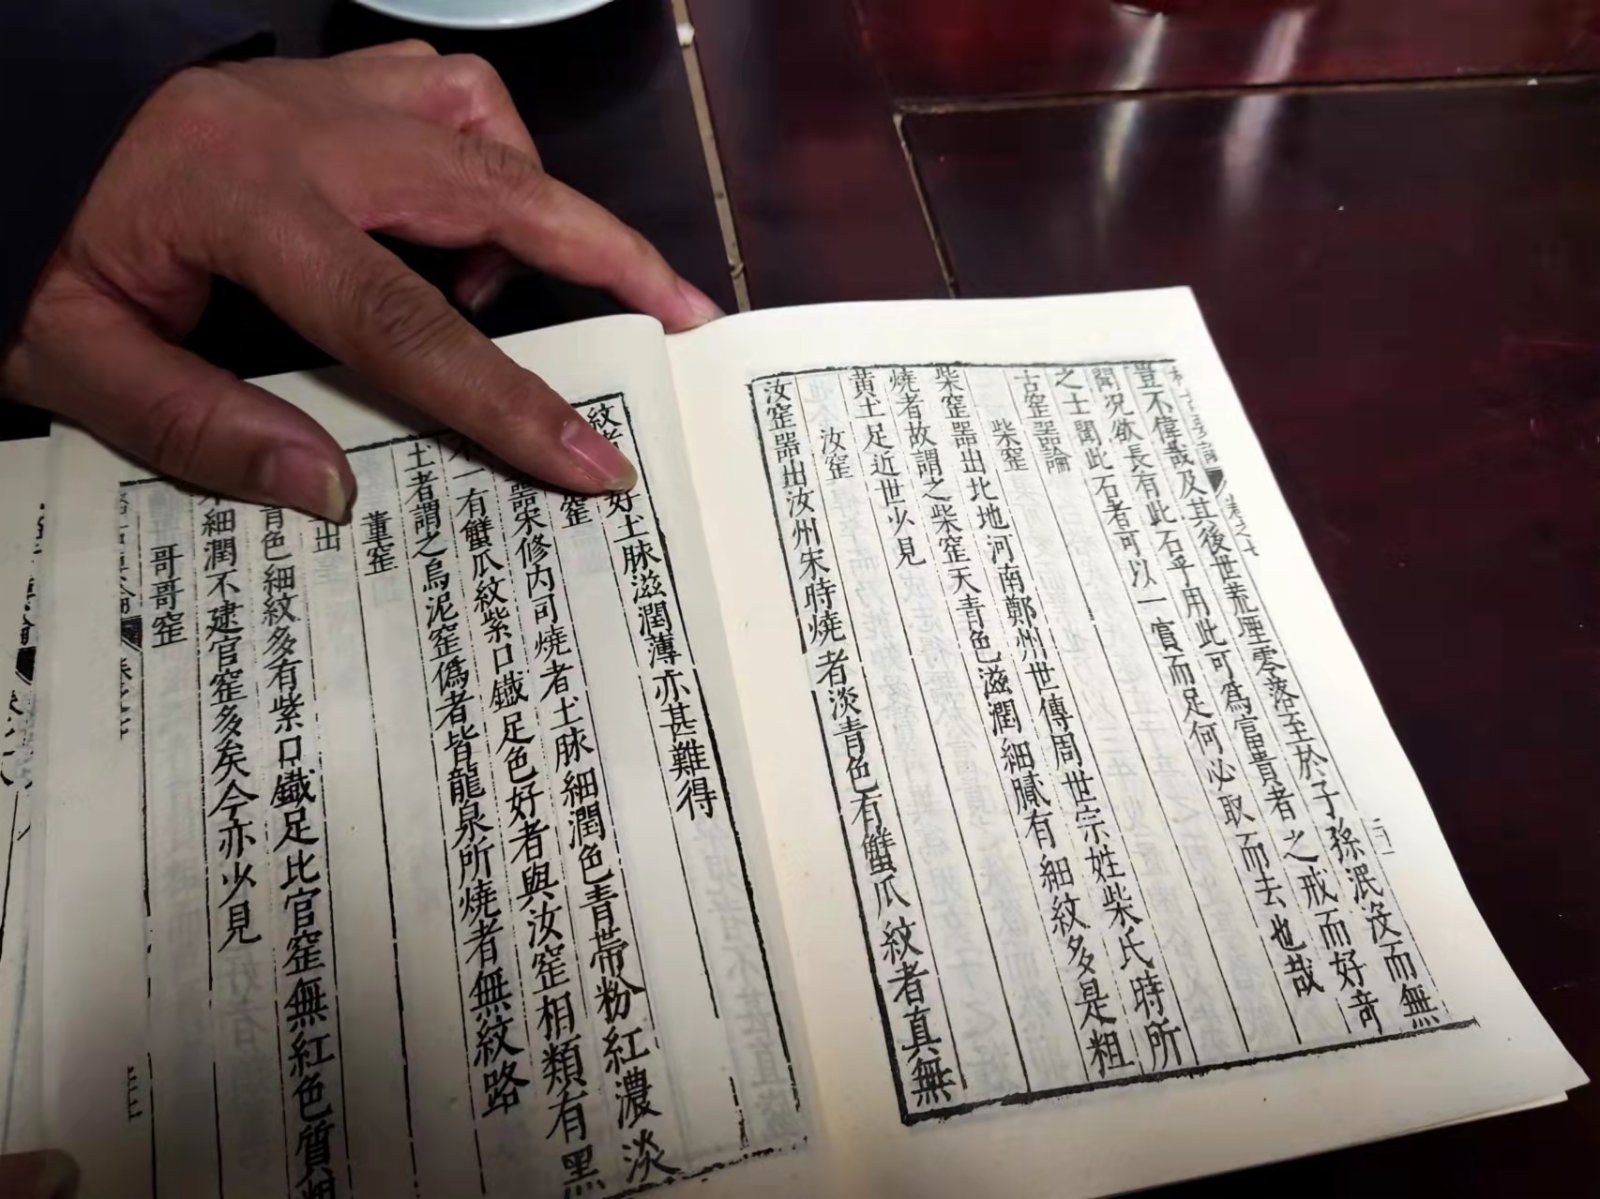 卷之七
豈不偉哉及其後世荒堙零落至於子孫泯没而無
聞況欲長有此石乎用此可為富貴者之戒而好奇
之士聞此石者可以一賔而足何必取而去也哉
古窑器論
柴窑
柴窑器出比地河南鄭州世傳周世宗姓柴氏時所
燒者故謂之柴窑天青色滋潤細膩有細紋多是粗
黄土足近世少見
汝窑
汝窑器出汝州宋時燒者淡青色有蟹爪紋者真無
紋者好土脉滋潤薄亦甚難得
窑
器宋修内司燒者土脉細潤色青帶粉紅濃淡
不一有蟹爪紋紫口鐵足色好者與汝窑相類有黑
土者謂之烏泥窑偽者皆龍泉所燒者無紋路
董窑
出
青色細紋多有紫口鐵足比官窑無紅色質粗
不細潤不逮官窑多矣今亦少見
哥哥窑
卷之七